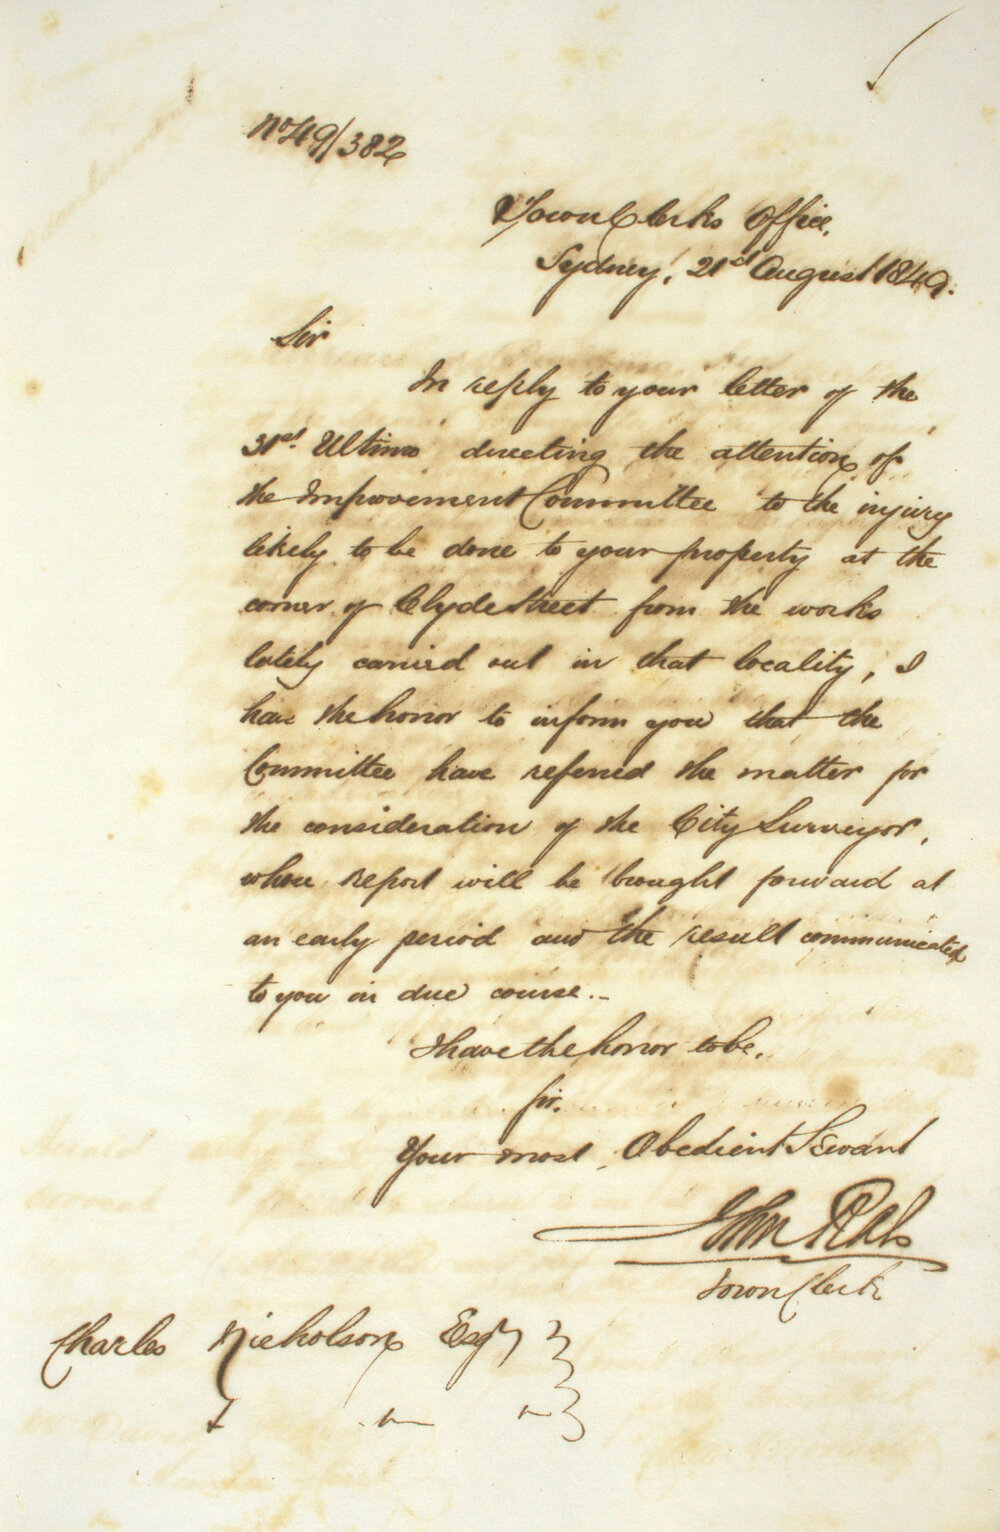 No 49/382
Town Clerks Office,
Sydney, 21st August 1849.
Sir
In reply to your letter of the
31st. Ultimo directing the attention of
the Improvement Committee to the injury
likely to be done to your property at the
corner of Clyde Street from the works
lately carried out in that locality, I
have the honor to inform you that the
Committee have referred the matter for
the consideration of the City Surveyor,
whose report will be brought forward at
an early period and the result communicated
to you in due course.-
I have the honor to be,
Sir,
Your most Obedient Servant
John
Town Clerk
Charles Nicholson Esqr